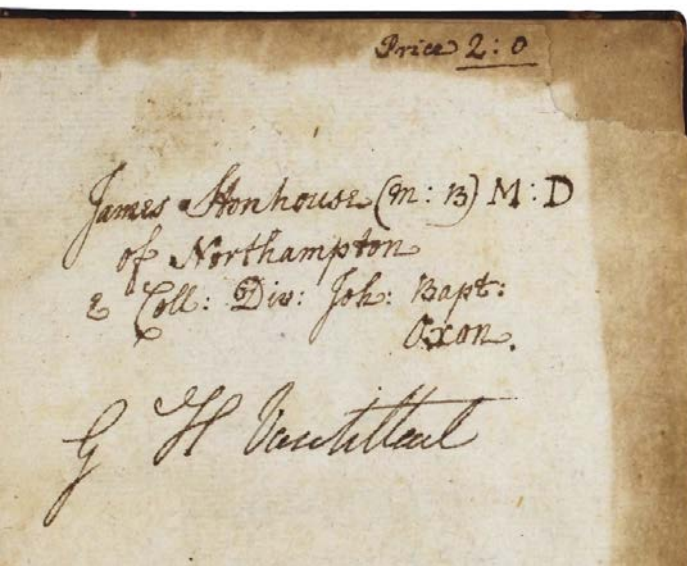 Price 2: 0
James Stonhouse (m: B) M: D
of Northampton
e Coll: Div: Joh: Bapt:
Oxon.
G H Vansittart